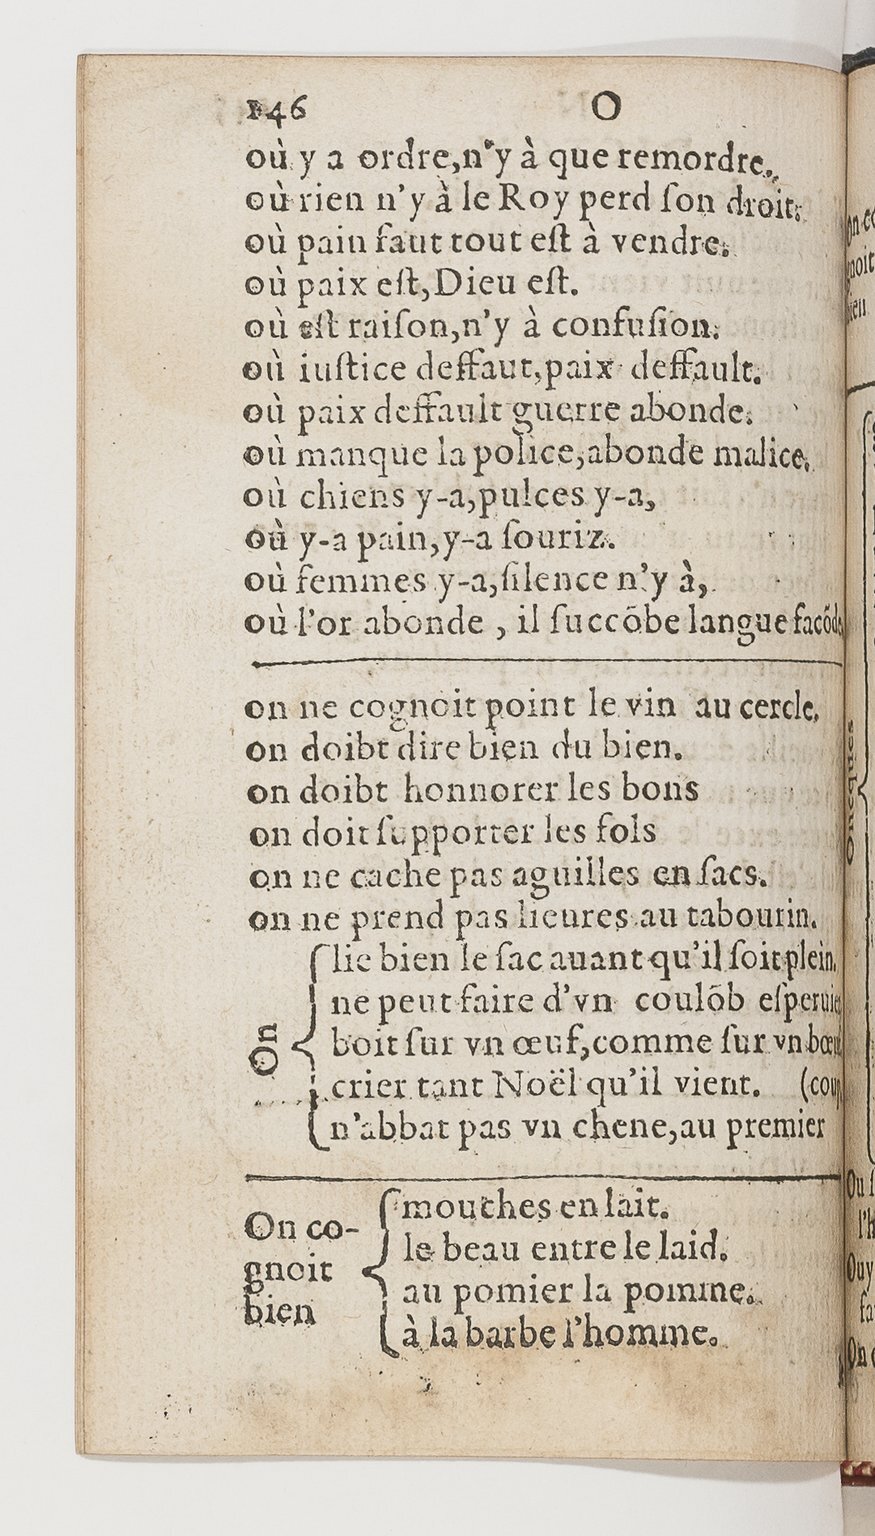 146 O
où y a ordre,n'y à que remordre.
où rien n'y à le Roy perd ſon droit.
où pain faut tout eſt à vendre.
où paix eſt,Dieu eſt.
où eſt raiſon,n'y à confuſion.
où iuſtice deffaut,paix deffault.
où paix deffault guerre abonde.
où manque la police,abonde malice.
où chiens y-a,pulces y-a,
où y-a pain,y-a ſouriz.
où femmes y-a,ſilence n'y à,
où l'or abonde , il ſuccõbe langue facõde
on ne cognoit point le vin au cercle.
on doibt dire bien du bien.
on doibt honnorer les bons
on doit ſupporter les fols
on ne cache pas aguilles en ſacs.
on ne prend pas lieures au tabourin.
lie bien le ſac auant qu'il ſoit plein.
ne peut faire d'vn coulõb eſperuie
On boit ſur vn œuf,comme ſur vn bœu
crier tant Noël qu'il vient. (coup
n'abbat pas vn chene,au premier
mouches en lait.
On co- le beau entre le laid.
gnoit au pomier la pomme.
bien à la barbe l'homme.